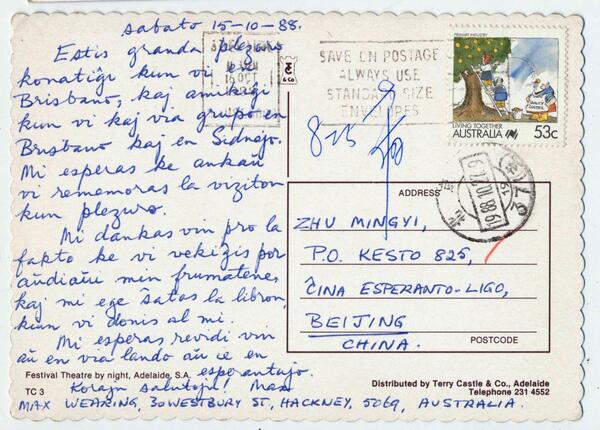 sabato 15-10-88.
Estis granda plezuro
konatiĝi kun vi en
Brisbano, kaj amikiĝi
kun vi kaj via grupo en
Brisbano kaj en Sidnejo.
Mi esperas ke ankaŭ
vi rememoras la viziton
kun plezuro.
Mi dankas vin pro la
fakto ke vi vekiĝis por
adiaŭi min frumatene,
kaj mi ege ŝatas la libron,
kiun vi donis al mi.
Mi esperas revidi vin
aŭ en via lando aŭ ĉe en
esperantujo.
Festival Theatre by night, Adelaide, S.A.
TC 3
Korajn salutojn! Max
MAX WEARING, 30 WESTBURY ST., HACKNEY, 5069, AUSTRALIA.
16 OCT
& CO
SAVE ON POSTAGE
ALWAYS USE
STANDARD SIZE
ENVELOPES
PRIMARY INDUSTRY
QUALITY CONTROL
LIVING TOGETHER
AUSTRALIA 53c
825
1988.10.27
ADDRESS
ZHU MINGYI,
P.O. KESTO 825,
ĈINA ESPERANTO-LIGO,
BEIJING
CHINA.
POSTCODE
Distributed by Terry Castle & Co., Adelaide
Telephone 231 4552